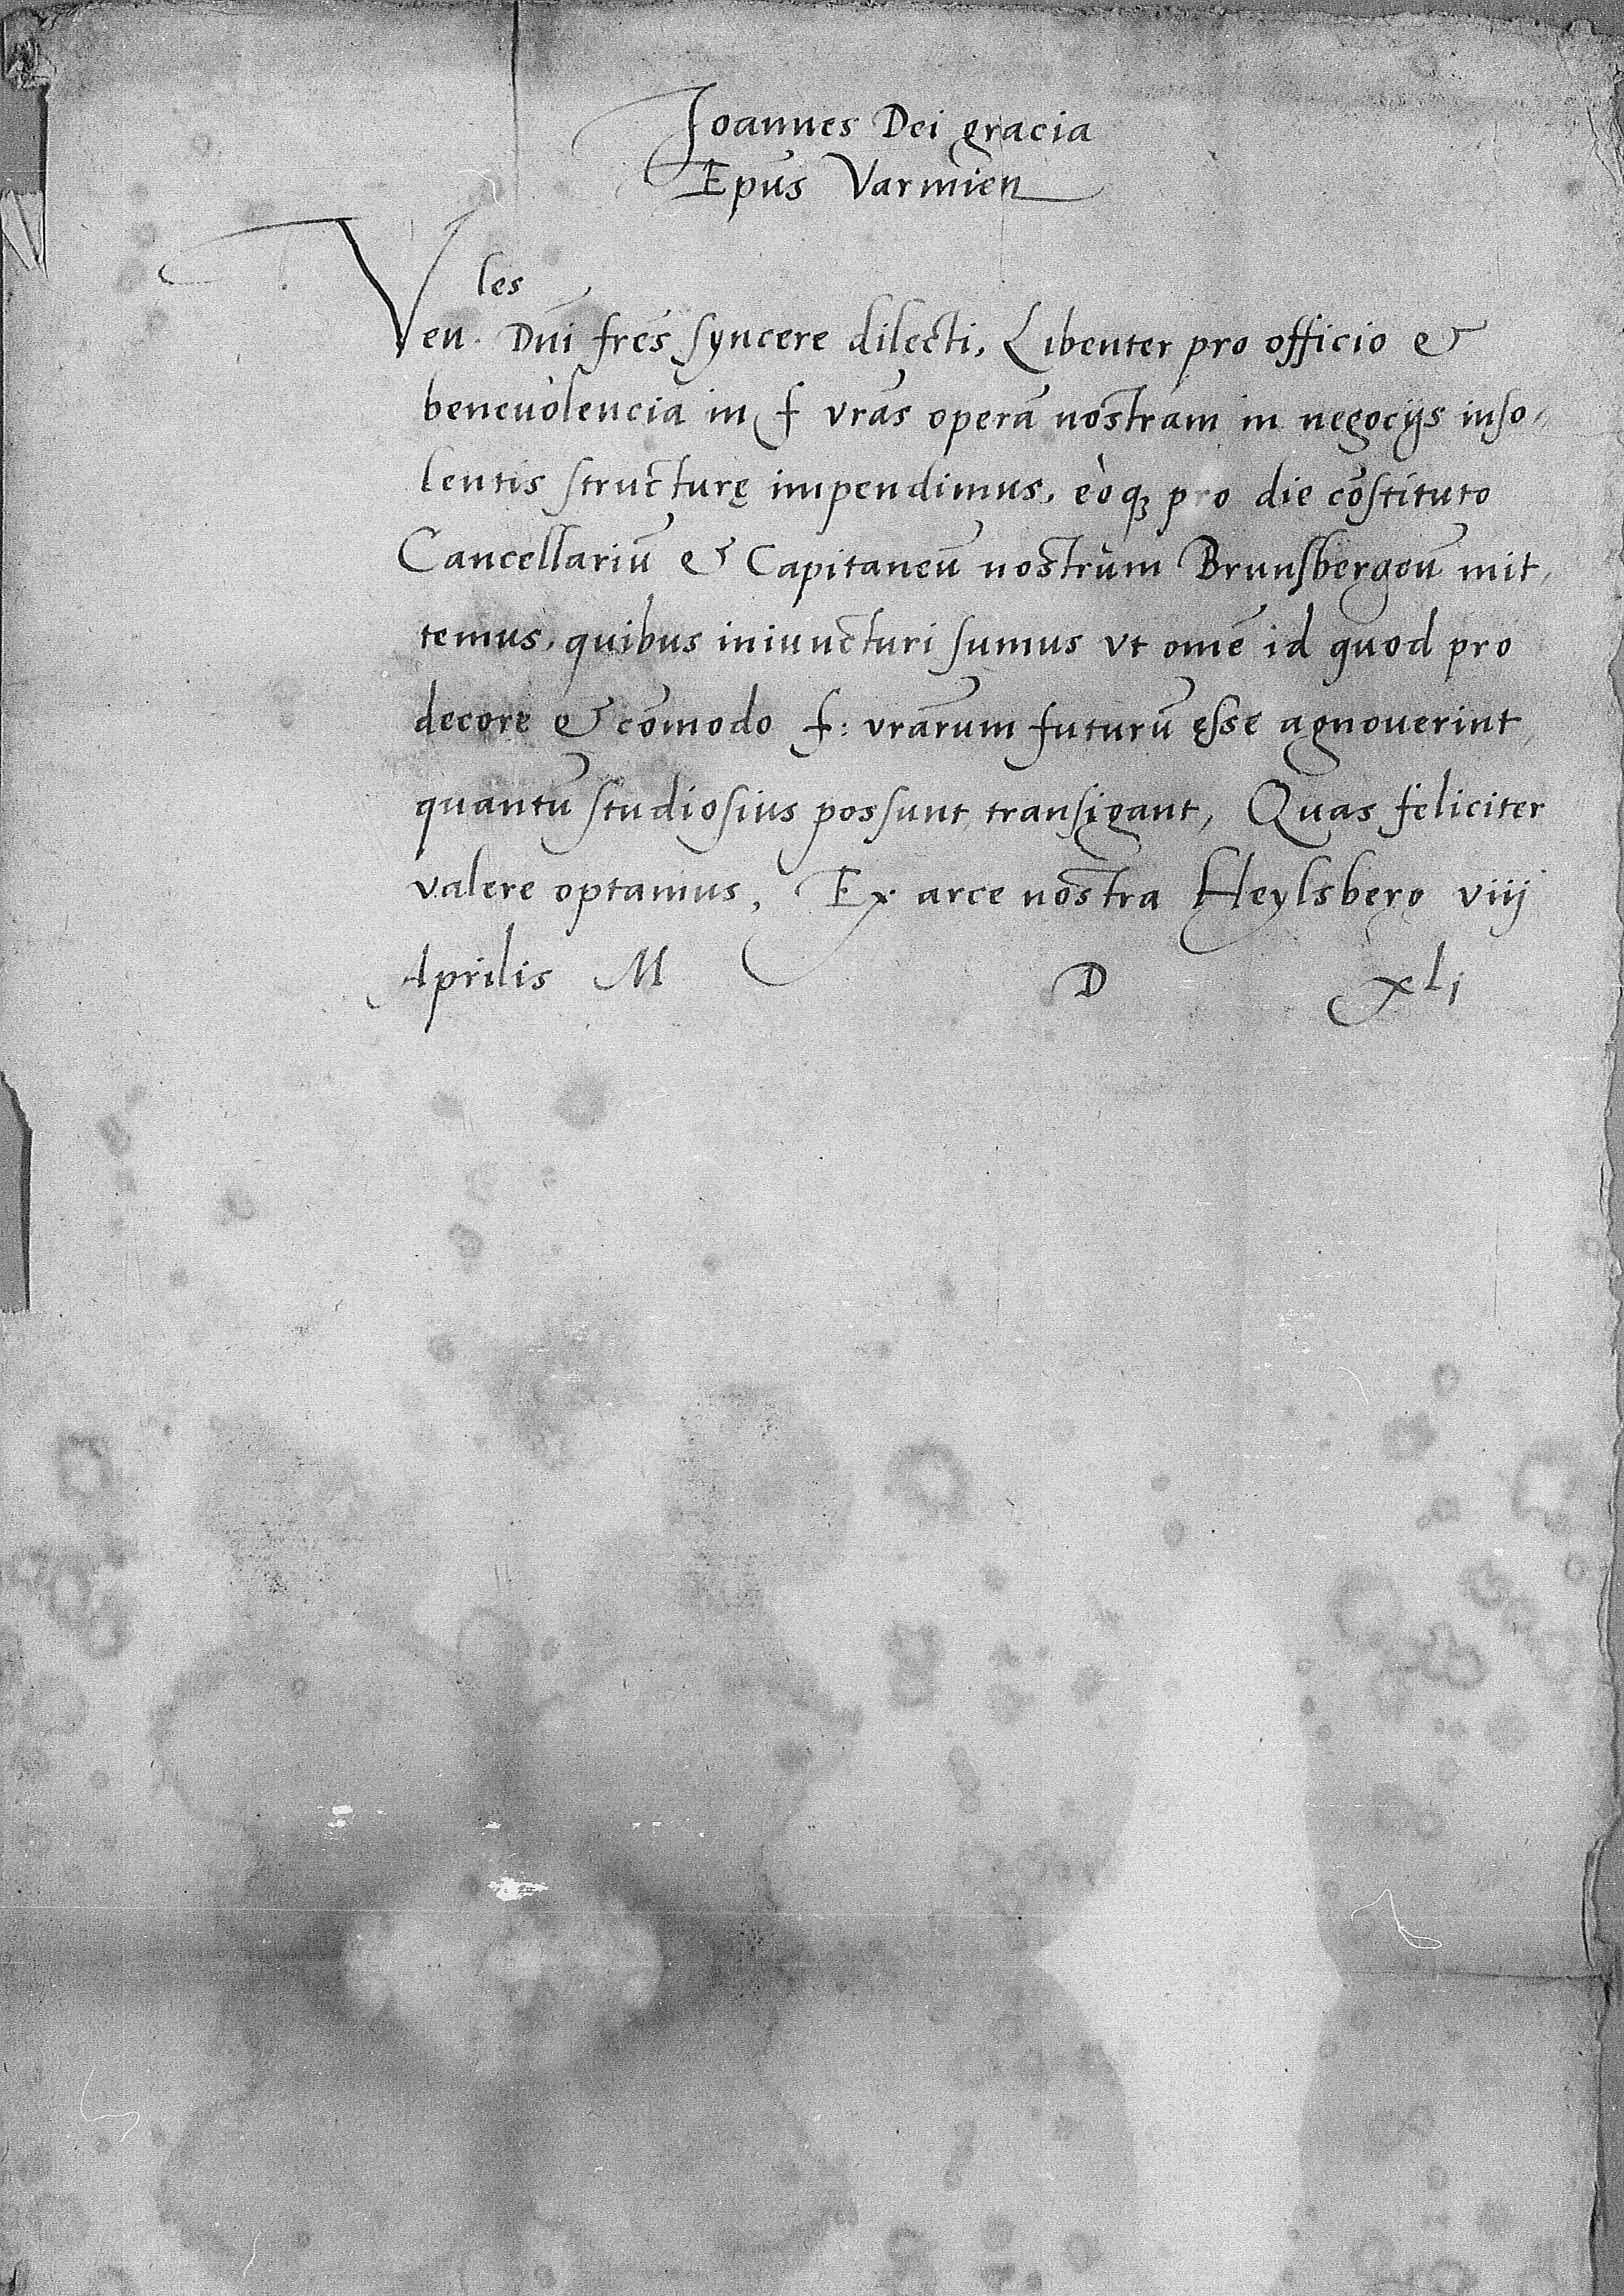 Joannes Dei gracia
Epus Varmien
Ven.les Dni fres syncere dilecti, Libenter pro officio &
beneuolencia in f vras opera nostram in negocijs inso-
lentis structurę impendimus, eoq; pro die cōstituto
Cancellariū & Capitaneū nostrum Brunsbergeñ mit,
temus, quibus iniuncturi sumus vt omē id quod pro
decore & cōmodo f: vrarum futurū ęsse agnouerint,
quantū studiosius possunt, transigant, Quas feliciter
valere optamus, Ex arce nostra Heylsberg viij
Aprilis M D XLi